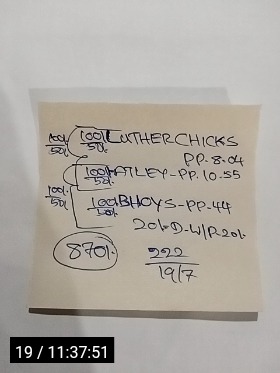 100/. 100/. LUTHER CHICKS
50/. 50/.
PP-8-04
100/. ATLEY-PP-10-55
50/.
100/. 100/. BHOYS-PP-44
50/. 50/.
20/-D-W/P-20/-
870/.
222
19/7
19 / 11:37:51